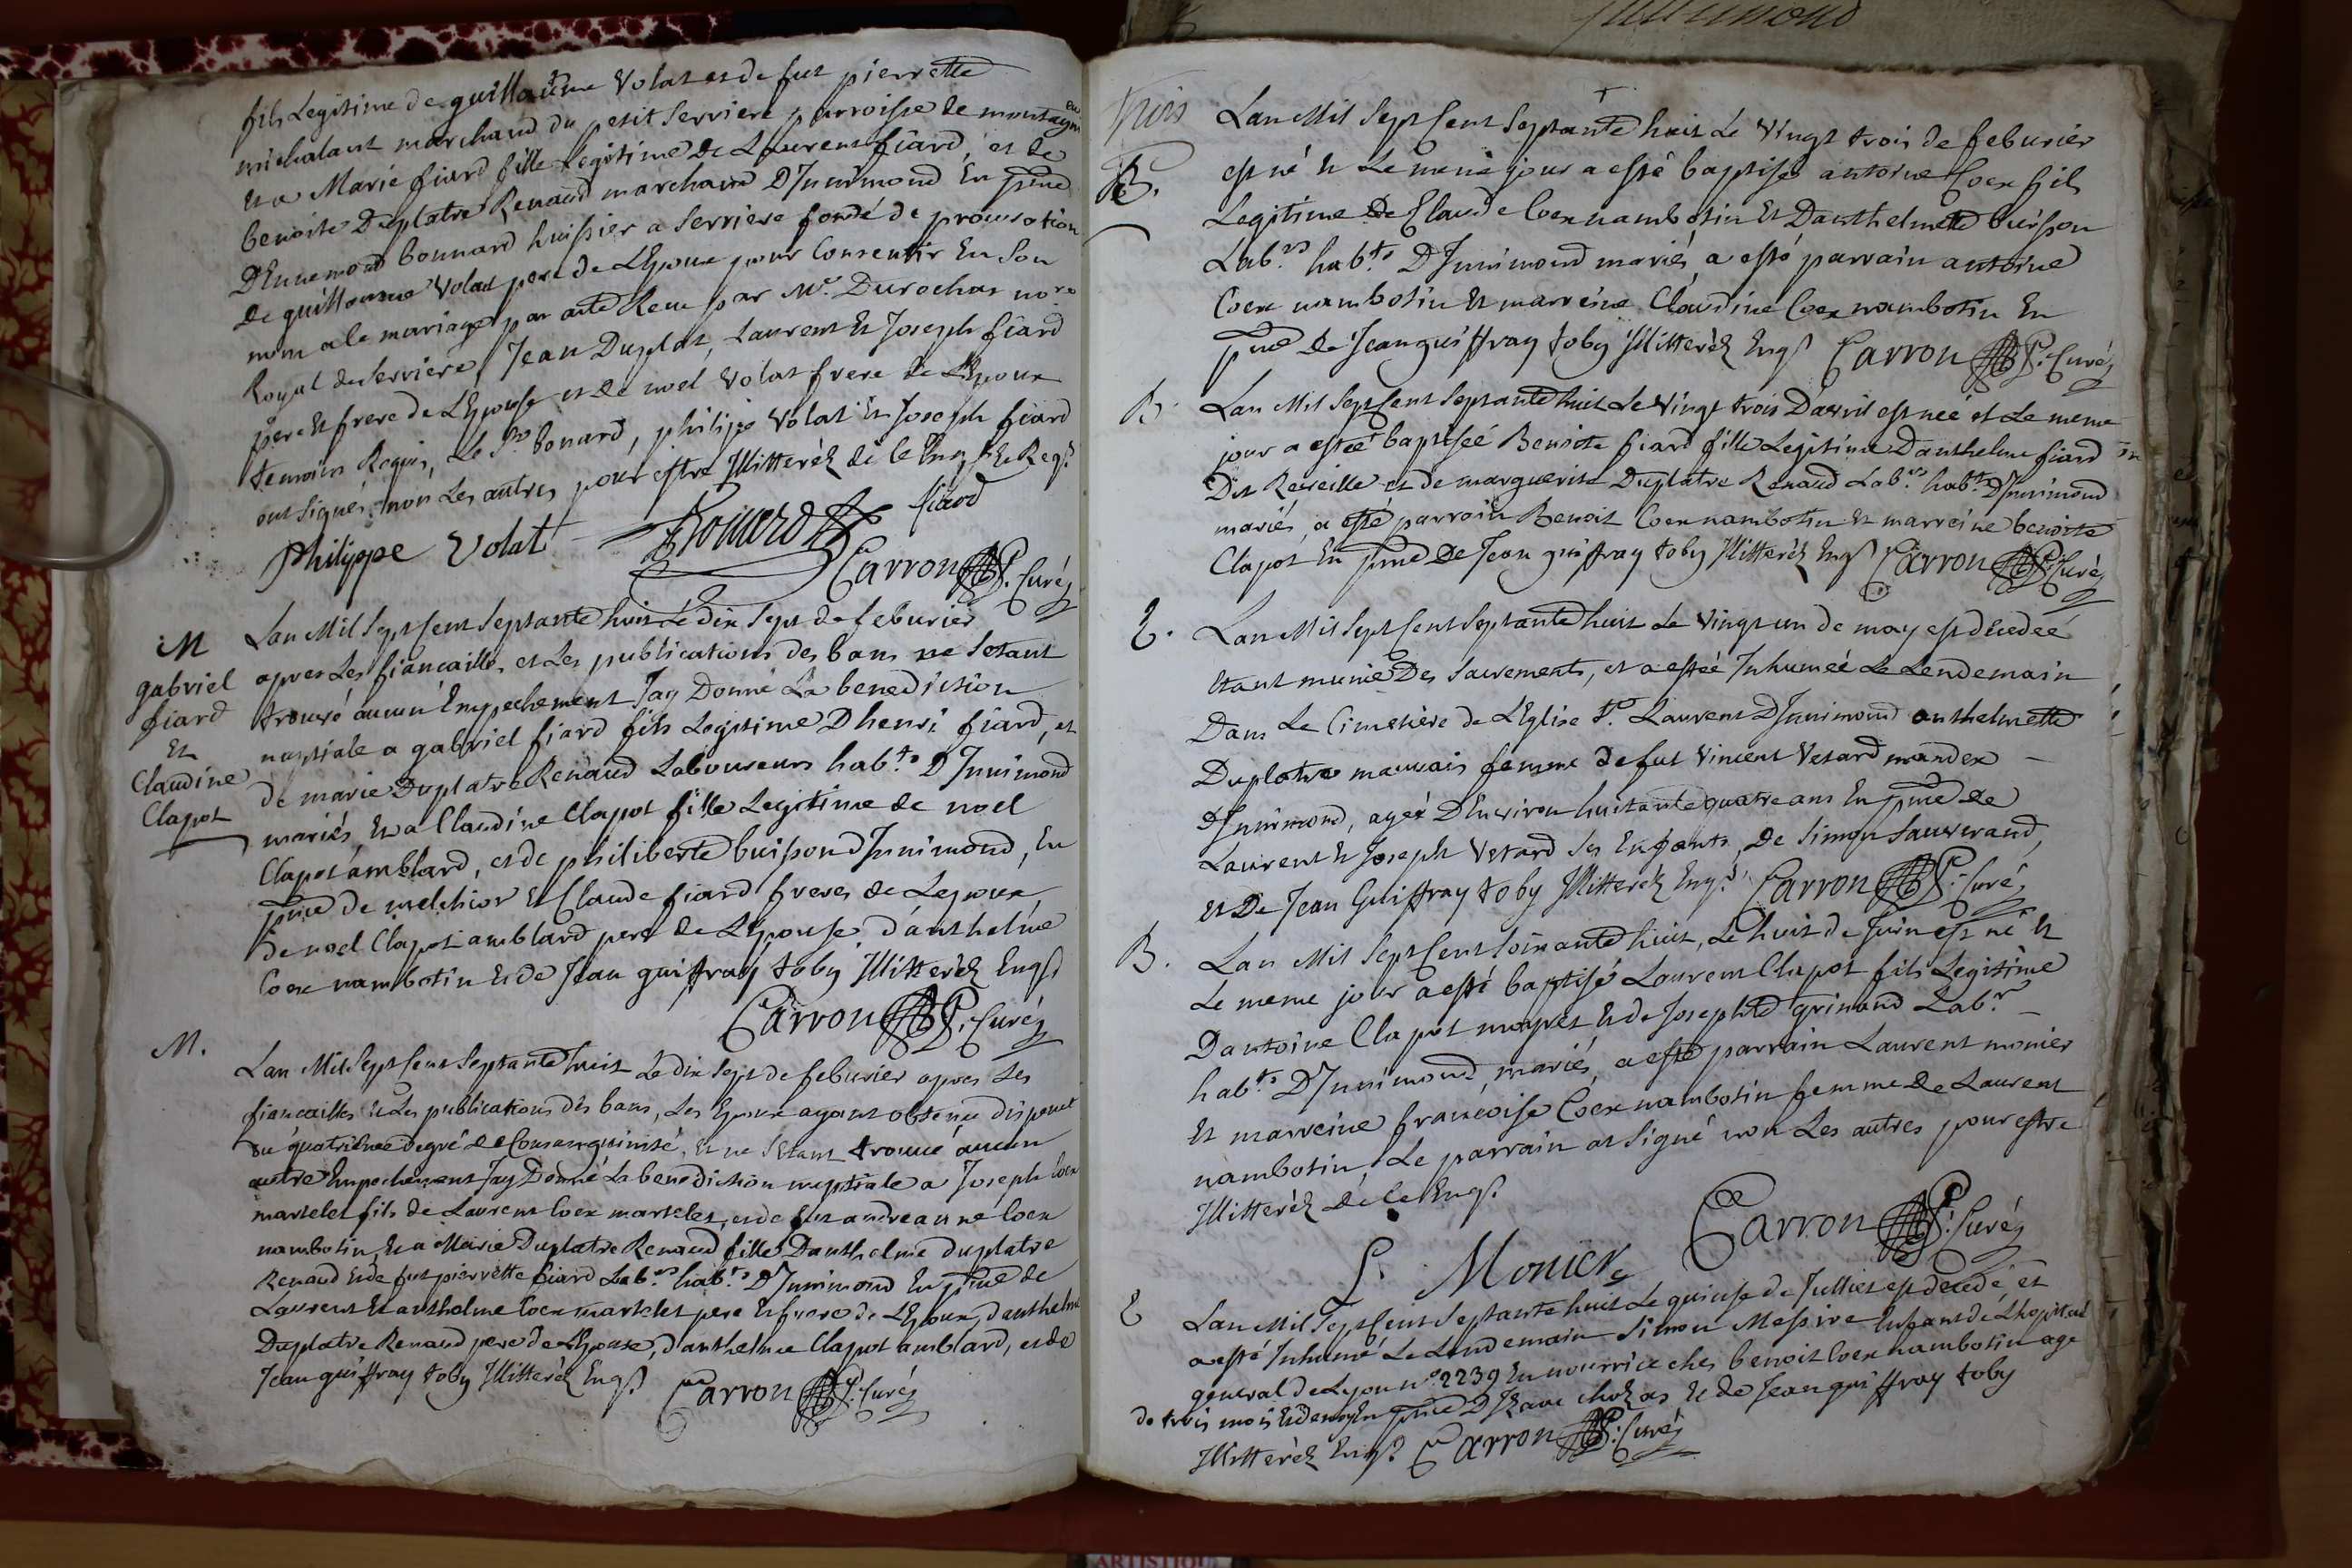 fils Legitime de guillaume Volat et de fut pierrette
michalant marchand du petit Serriere parroisse de montagn
et a Marie fiard fille Legitime de Laurent fiard, et de
benoite Duplatre Renaud marchand D'Innimond En pnce
D'Ennemond bonnard huissier a Serriere fondé de procuration
de guillaume Volat pere de L'Epoux pour Consentir En Son
nom a le mariage par acte Receu par Me. Durochat nore
Royal de Serriere, Jean Duplat, Laurent Et Joseph fiard
pere Et frere de L'Epouse et de noel Volat frere de L'Epoux
temoins Requis, Le Sr. bonard, philippe Volat Et Joseph fiard
ont Signés non Les autres pour estre Illitteréz de ce Enqs Et Reqs
Philippe Volat Bonard fiard
Carron P. Curé
M Lan Mil Sept Cent Septante huit Le dix Sept de feburier
gabriel apres Les fiancailles et Les publications des bans ne Setant
fiard trouvé aucun Empechement J'ay Donné La benediction
Et nuptiale a gabriel fiard fils Legitime D'henri fiard, et
Claudine de marie Duplatre Renaud Laboureurs habts D'Innimond
Clapot mariés, Et a Claudine Clapot fille Legitime de noel
Clapot amblard, et de philiberte buisson D'Innimond, En
pnce de melchior Et Claude fiard freres de Lepoux,
de noel Clapot amblard pere de L'Epouse, d'anthelme
Coex nambotin Et de Jean guiffray toby Illitteréz Enqs
Carron P. Curé
M. Lan Mil Sept Cent Septante huit Le dix Sept de feburier apres Les
fiancailles Et Les publications des bans, Les Epoux ayant obtenu dispense
du quatrieme degré de Consanguinité, Et ne S'Etant trouvé aucun
autre Empechement J'ay Donné La benediction nuptiale a Joseph Coex
martelet fils de Laurent Coex martelet, et de fut andreanne Coex
nambotin, Et a Marie Duplatre Renaud fille D'anthelme duplatre
Renaud Et de fut pierrette fiard Labrs habts D'Innimond En pnce de
Laurent Et anthelme Coex martelet pere Et frere de L'Epoux, d'anthelme
Duplatre Renaud pere de L'Epouse, d'anthelme Clapot amblard, et de
Jean guiffray toby Illitteréz Enqs Carron P. Curé
Lan Mil Sept Cent Septante huit Le Vingt trois de feburier
B. est né Et Le meme jour a esté baptisé antoine Coex fils
Legitime De Claude Coex nambotin Et D'anthelmette buisson
Labrs habts D'Innimond mariés, a esté parrain antoine
Coex nambotin Et marreine Claudine Coex nambotin En
pnce de Jean guiffray toby Illitteréz Enqs Carron P. Curé
B. Lan Mil Sept Cent Septante huit Le Vingt trois D'avril est neé et Le meme
jour a esteé baptiseé Benoite fiard fille Legitime D'anthelme fiard
Dit Reveille et de marguerite Duplatre Renaud Labrs habts D'Innimond
mariés, a esté parrain Benoit Coex nambotin Et marreine benoite
Clapot En pnce De Jean guiffray toby Illitteréz Enqs Carron P. Curé
E. Lan Mil Sept Cent Septante huit Le Vingt un de may est decedeé
Etant munie Des Sacrements, et a esteé Inhumeé Le Lendemain
Dans Le Cimetière de L'Eglise St. Laurent D'Innimond anthelmette
Duplatre mauvais femme de fut Vincent Vetard mandex
D'Innimond, ageé D'Environ huitante quatre ans En pnce de
Laurent Et Joseph Vetard Ses Enfants, De Simon Sauverand,
et De Jean Guiffray toby Illitteréz Enqs Carron P. Curé
B. Lan Mil Sept Cent Soixante huit, Le huit de Juin est né Et
Le meme jour a esté baptisé Laurent Clapot fils Legitime
D'antoine Clapot mayret Et de Josephte grinand Labr
habts D'Innimond mariés, a esté parrain Laurent monier
Et marreine francoise Coex nambotin femme de Laurent
nambotin, Le parrain at Signé non Les autres pour estre
Illitteréz de ce Enqs
Carron P. Curé
L. Monier
E Lan Mil Sept Cent Septante huit Le quinse de Juillet est decedé et
a esté Inhumé Le Lendemain Simon Messire Enfant de L'hopital
general de Lyon no. 2239 En nourrice ches benoit Coex nambotin age
de trois mois Et demy En pnce de Jean guiffray toby
Illitteréz Enqs Carron P. Curé